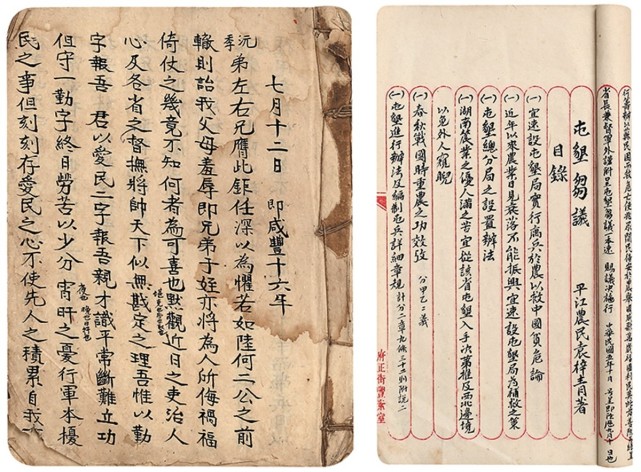 七月十二日 即咸豐十六年
沅季弟左右兄膺此鉅任深以為懼若如陸何二公之前
轍則詒我父母羞辱即兄弟子姪亦將為人所侮禍福
倚仗之幾竟不知何者為可喜也默觀近日之吏治人
心及各省之督撫將帥天下似無戡定之理吾惟以勤
字報吾 君以愛民二字報吾 親才識平常斷難立功
但守一勤字終日勞苦以少分 宵旰之憂行軍本擾
民之事但刻刻存愛民之心不使先人之積累自我
屯墾芻議 平江農民袁梓青著
目錄
(一)宜速設屯墾局實行寓兵於農以救中國貧危論
(一)近年以來農業日見衰落不能振興宜速設屯墾局為補救之策
(一)屯墾總分局之設置辦法
(一)湖南農業之優人滿之苦宜從該省屯墾入手次第推及西北邊境
以免外人窺覬
(一)春秋戰國時重農之功效攷 分甲乙二義
(一)屯墾進行辦法及編制屯兵詳細章規 計分二章九條三十五則附說二